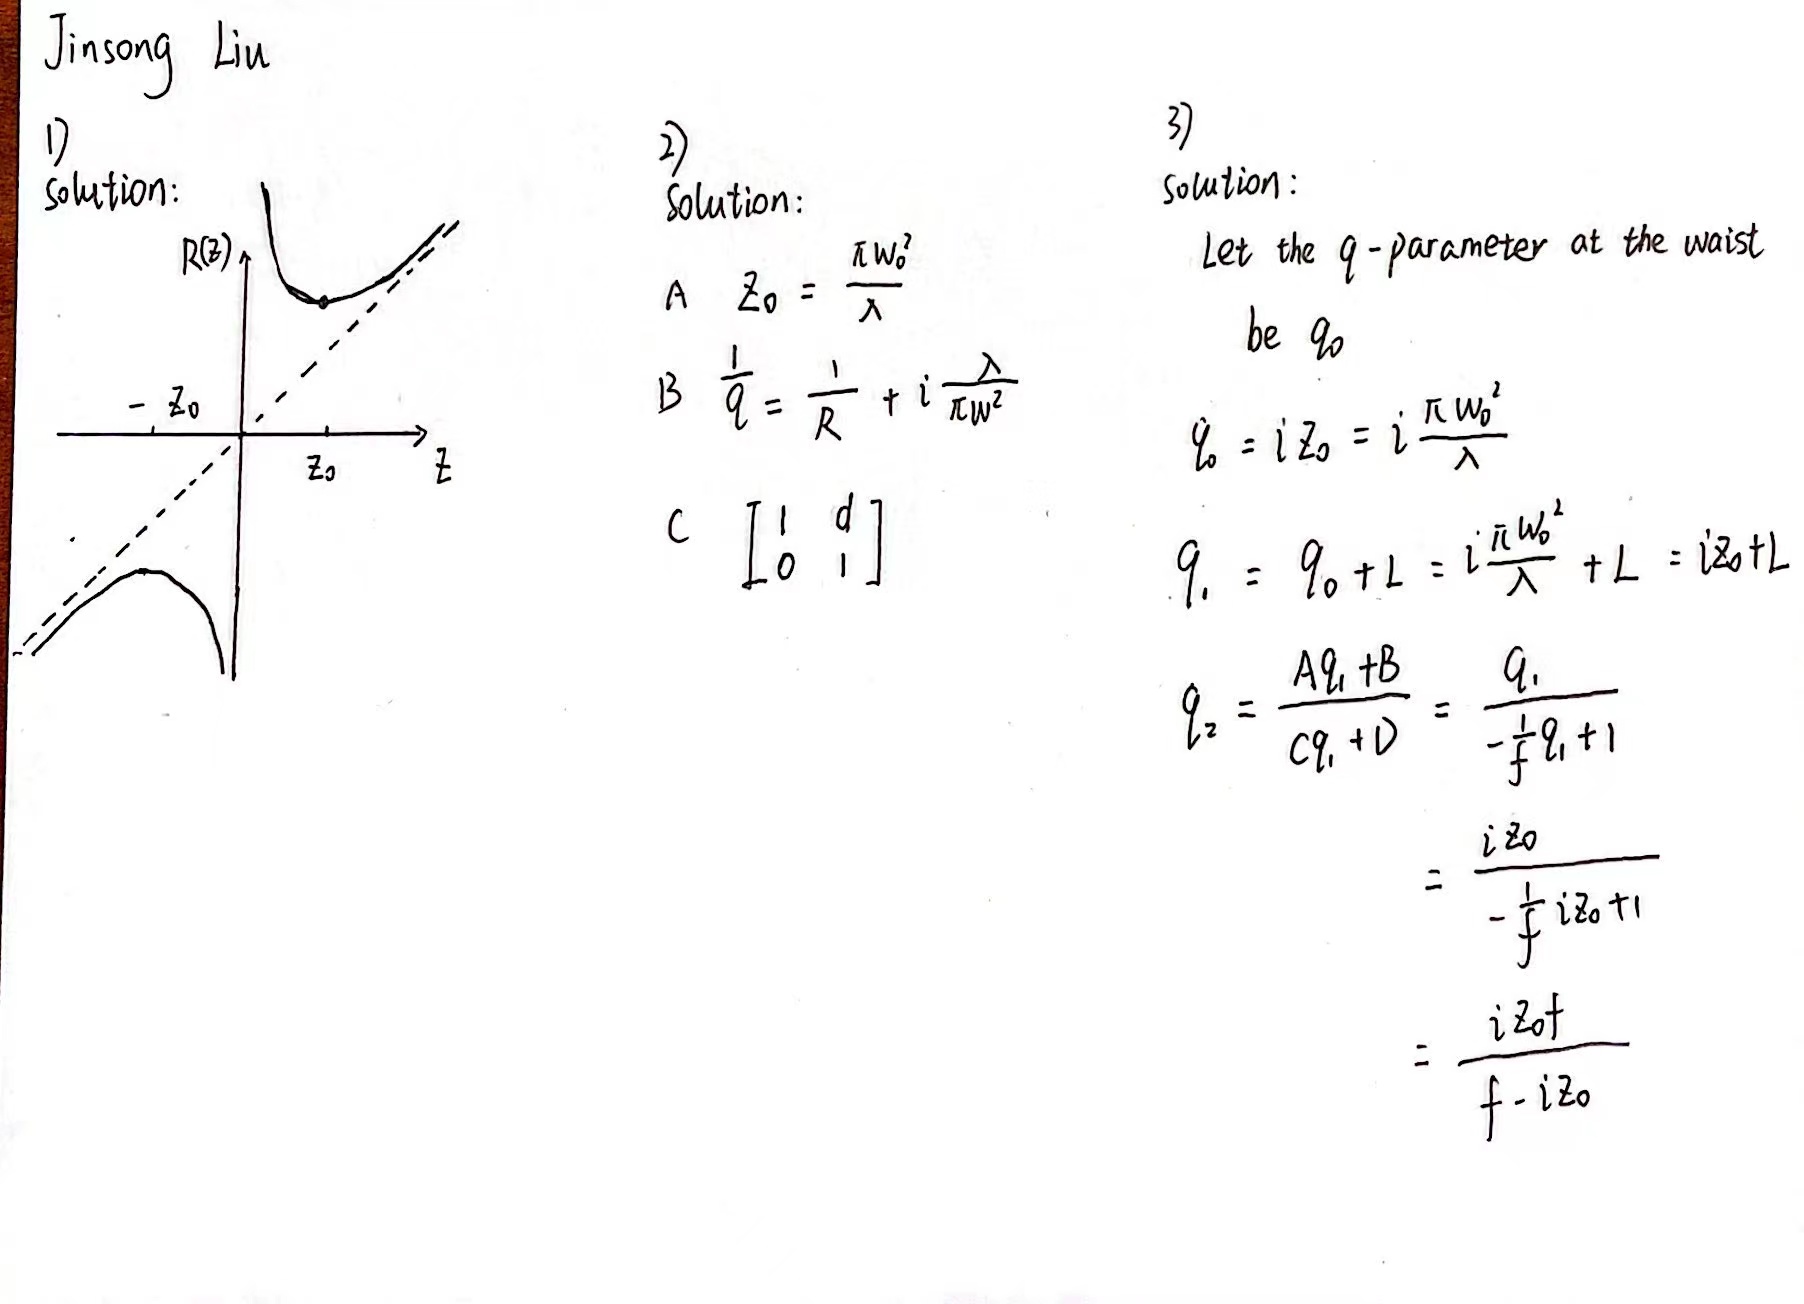 Jinsong Liu
1)
solution:
R(z)
- z₀
z₀
z
2)
Solution:
A z₀ = πw₀²/λ
B 1/q = 1/R + i λ/πw²
C [1 d
0 1]
3)
solution:
Let the q-parameter at the waist
be q₀
q₀ = iz₀ = i πw₀²/λ
q₁ = q₀ + L = i πw₀²/λ + L = iz₀+L
q₂ = (Aq₁+B)/(Cq₁+D) = q₁/(-1/f q₁+1)
= iz₀/(-1/f iz₀+1)
= iz₀f/(f-iz₀)